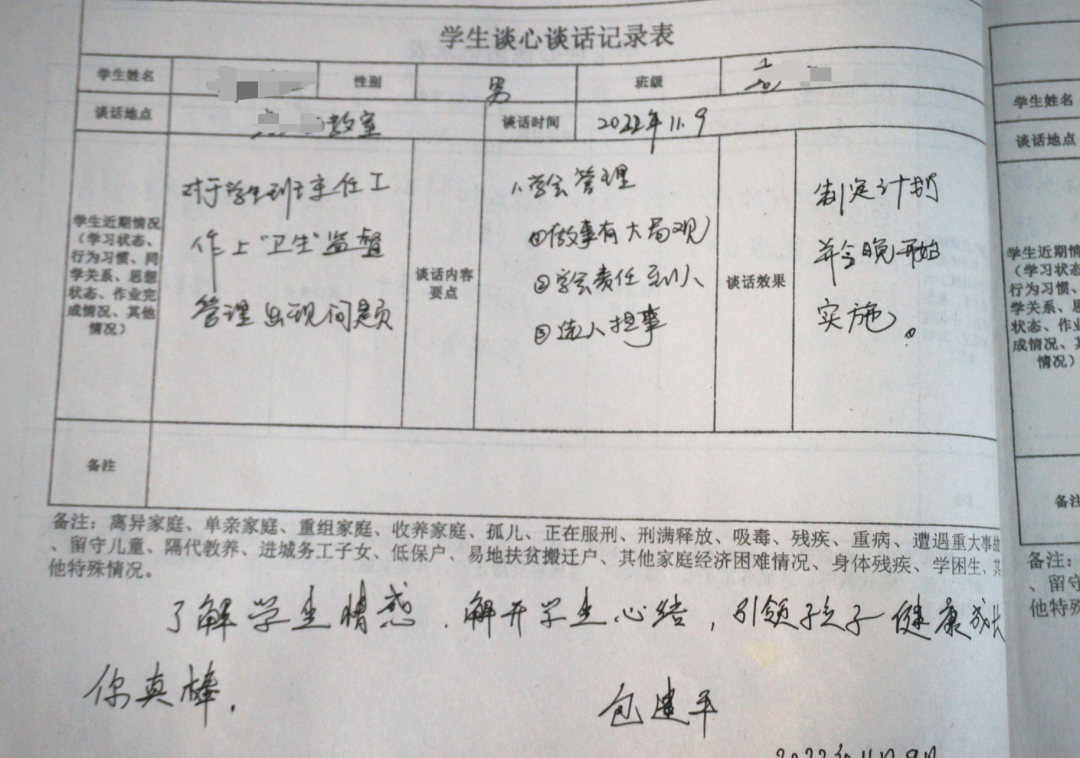 学生谈心谈话记录表
学生姓名 性别 男 班级
谈话地点 教室 谈话时间 2022年11.9
学生近期情况
(学习状态、
行为习惯、同
学关系、思想
状态、作业完
成情况、其他
情况)
对于学生班主任工
作上“卫生”监督
管理出现问题
谈话内容
要点
1、学会管理
①做事有大局观
②学会责任到人
③选人担事
谈话效果
制定计划
并今晚开始
实施。
备注
备注:离异家庭、单亲家庭、重组家庭、收养家庭、孤儿、正在服刑、刑满释放、吸毒、残疾、重病、遭遇重大事故
、留守儿童、隔代教养、进城务工子女、低保户、易地扶贫搬迁户、其他家庭经济困难情况、身体残疾、学困生、其
他特殊情况。
了解学生情感,解开学生心结,引领孩子健康成长
你真棒.
包建平
2022年11月9日
学生姓名
谈话地点
学生近期情
(学习状态、
行为习惯、
学关系、思
状态、作业
成情况、其
情况)
备注
备注:
、留守
他特殊